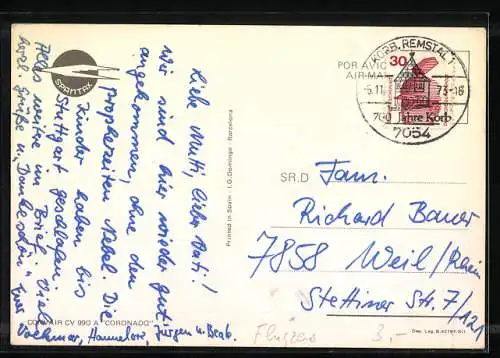 SPANTAX
Liebe Mutti, lieber Vati!
Wir sind hier wieder gut
angekommen, ohne den
prophezeiten Nebel. Die
Kinder haben bis
Stuttgart geschlafen.
Alles weitere im Brief. Viele
herzl. Grüße u. "Dankeschön" Eure
Volkmar, Hannelore, Jürgen u. Beab.
CONVAIR CV 990 A "CORONADO"
Printed in Spain - I.G. Domingo - Barcelona
POR AVION
AIR MAIL
30
KORB, REMSTAL 1
-5.11.73-18
700 Jahre Korb
7054
SR.D
Fam.
Richard Bauer
7858 Weil/Rhein
Stettiner Str. 7/121
Flugzeug
3,-